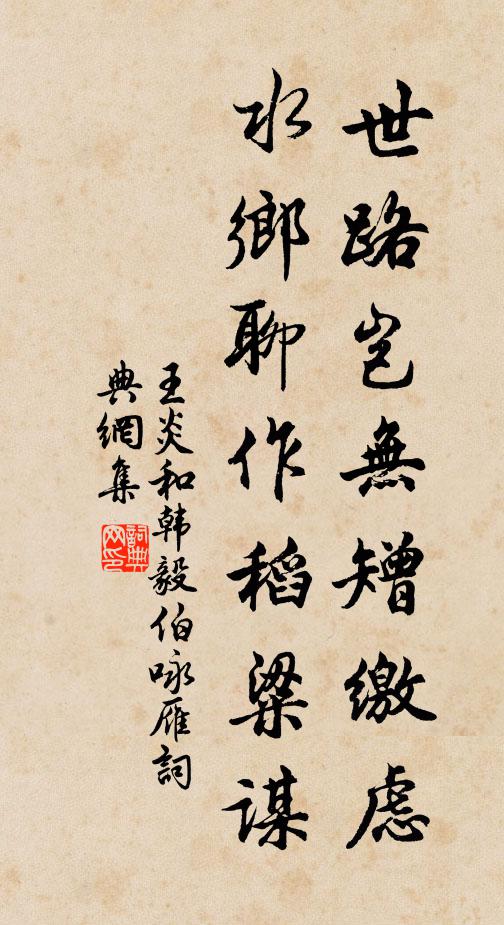 世路岂無矰繳慮
水鄉聊作稻粱謀
王炎和韩毅伯咏雁詞
典網集
詞典
网印